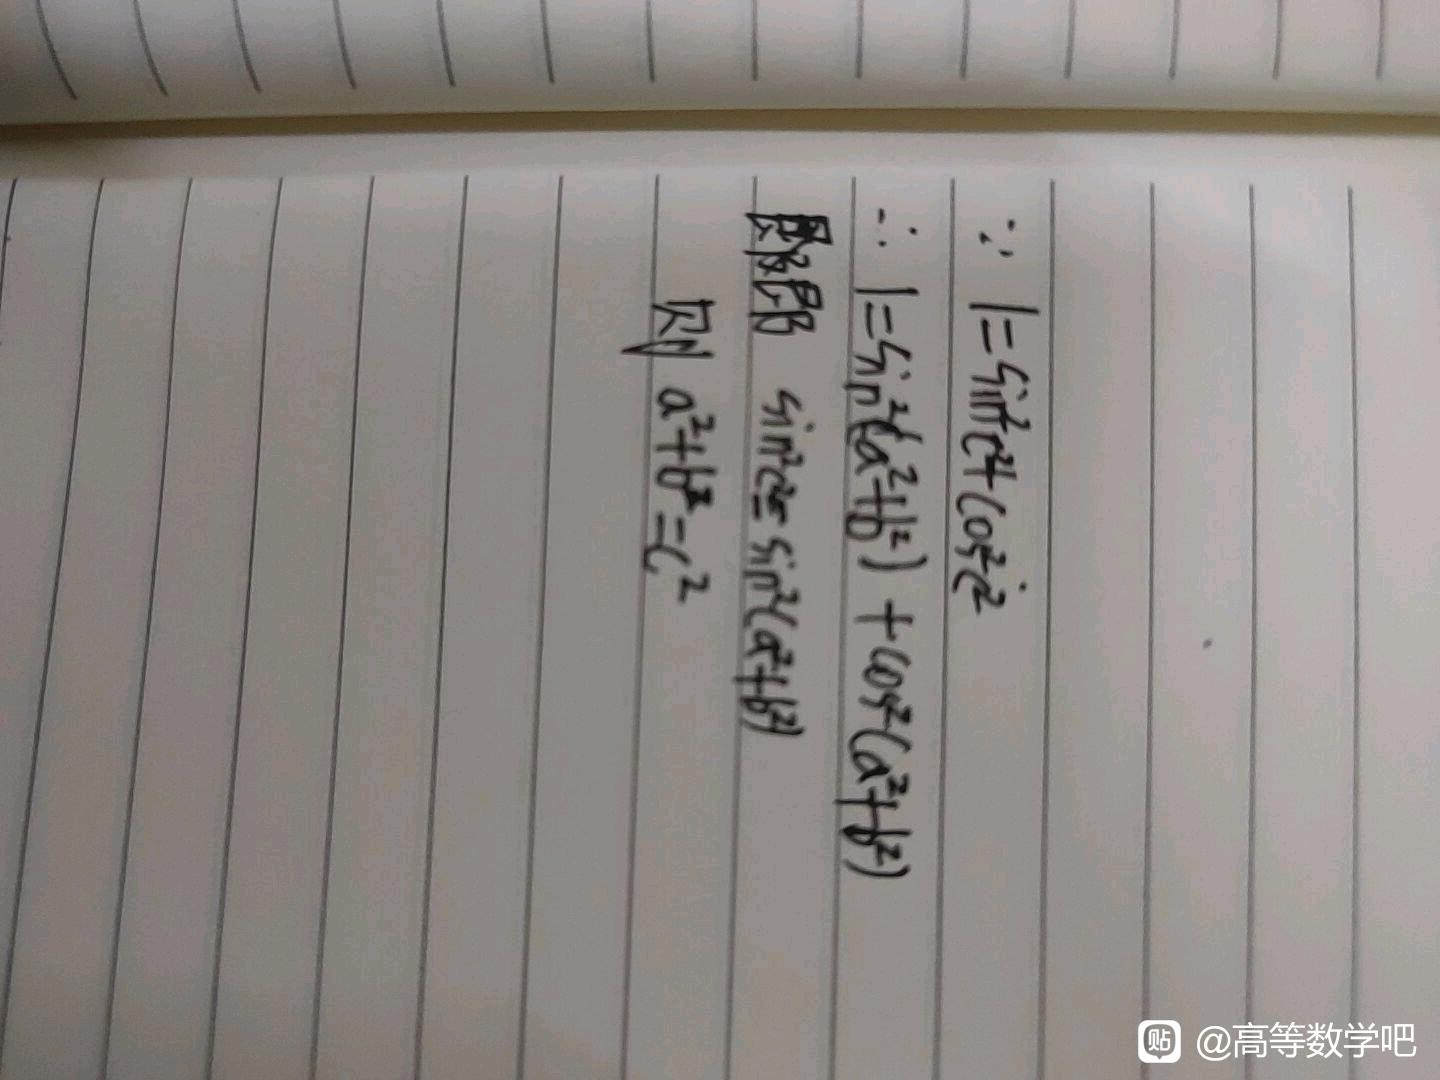 ∵ 1=sin²c²+cos²c²
∴ 1=sin²(a²+b²)+cos²(a²+b²)
sin²c²=sin²(a²+b²)
则 a²+b²=c²
贴 @高等数学吧